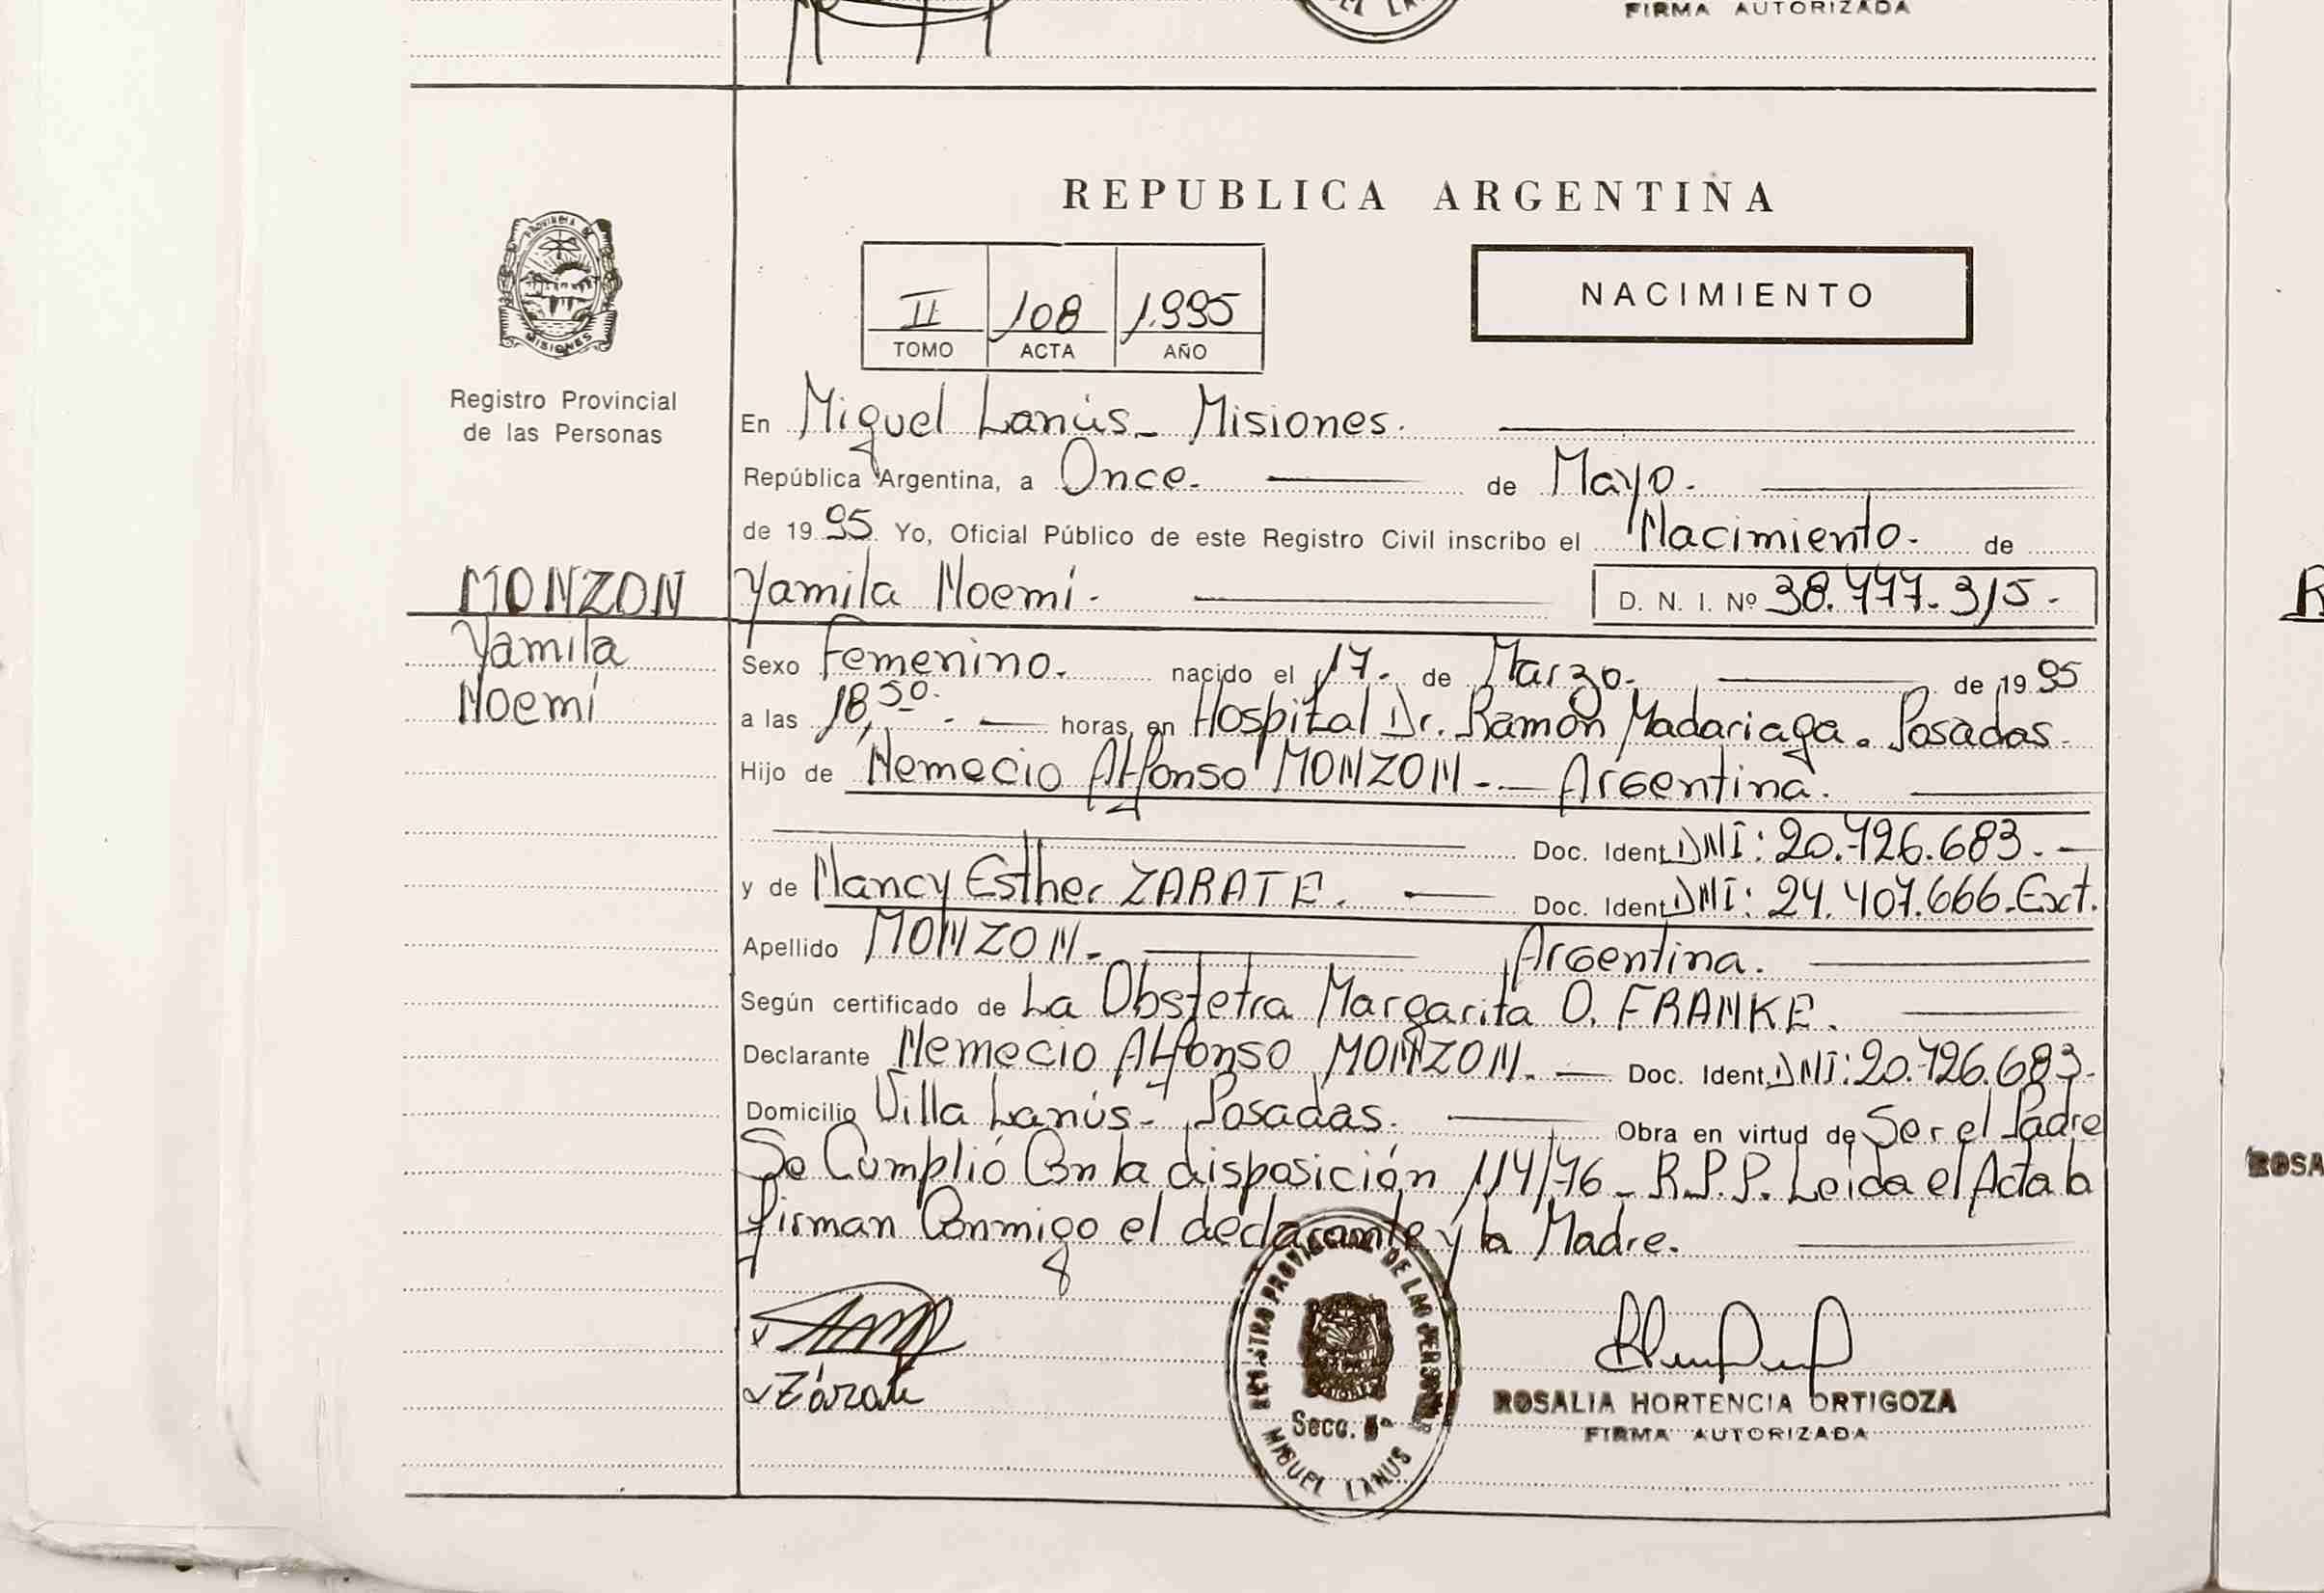 FIRMA AUTORIZADA
REPUBLICA ARGENTINA
PROVINCIA DE
MISIONES
II 108 1.995
TOMO ACTA AÑO
NACIMIENTO
Registro Provincial
de las Personas
En Miguel Lanús - Misiones.
República Argentina, a Once. de Mayo.
de 1995 Yo, Oficial Público de este Registro Civil inscribo el Nacimiento. de
MONZON
Yamila
Noemí
Yamila Noemí. D. N. I. Nº 38.777.315.
Sexo Femenino. nacido el 17. de Marzo. de 1995
a las 18,50. horas, en Hospital Dr. Ramón Madariaga. Posadas.
Hijo de Nemecio Alfonso MONZON.- Argentina.
Doc. Ident. DNI: 20.726.683.
y de Nancy Esther ZARATE. Doc. Ident. DNI: 24.407.666. Ext.
Apellido MONZON. Argentina.
Según certificado de La Obstetra Margarita O. FRANKE.
Declarante Nemecio Alfonso MONZON. Doc. Ident. DNI: 20.726.683.
Domicilio Villa Lanús - Posadas. Obra en virtud de Ser el Padre
Se Cumplió Con la disposición 114/76 - R.P.P. Leida el Acta la
firman Conmigo el declarante y la Madre.
Zárate
REGISTRO PROVINCIAL DE LAS PERSONAS
Secc. 5ª
MIGUEL LANUS
ROSALIA HORTENCIA ORTIGOZA
FIRMA AUTORIZADA
ROSA